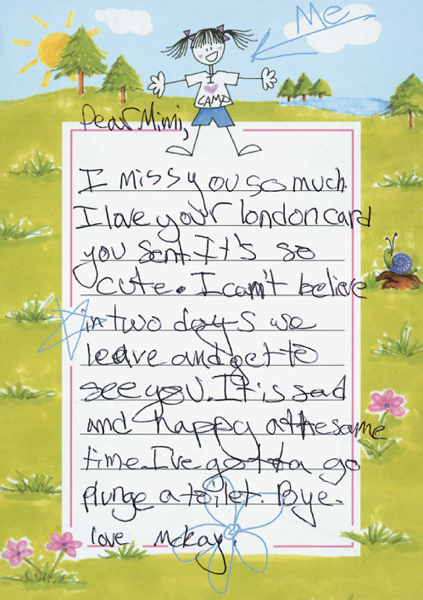 Me
CAMP
Dear Mimi,
I miss you so much.
I love your london card
you sent. It's so
cute. I can't believe
in two days we
leave and get to
see you. It is sad
and happy at the same
time. I've gotta go
plunge a toilet. Bye.
love McKay